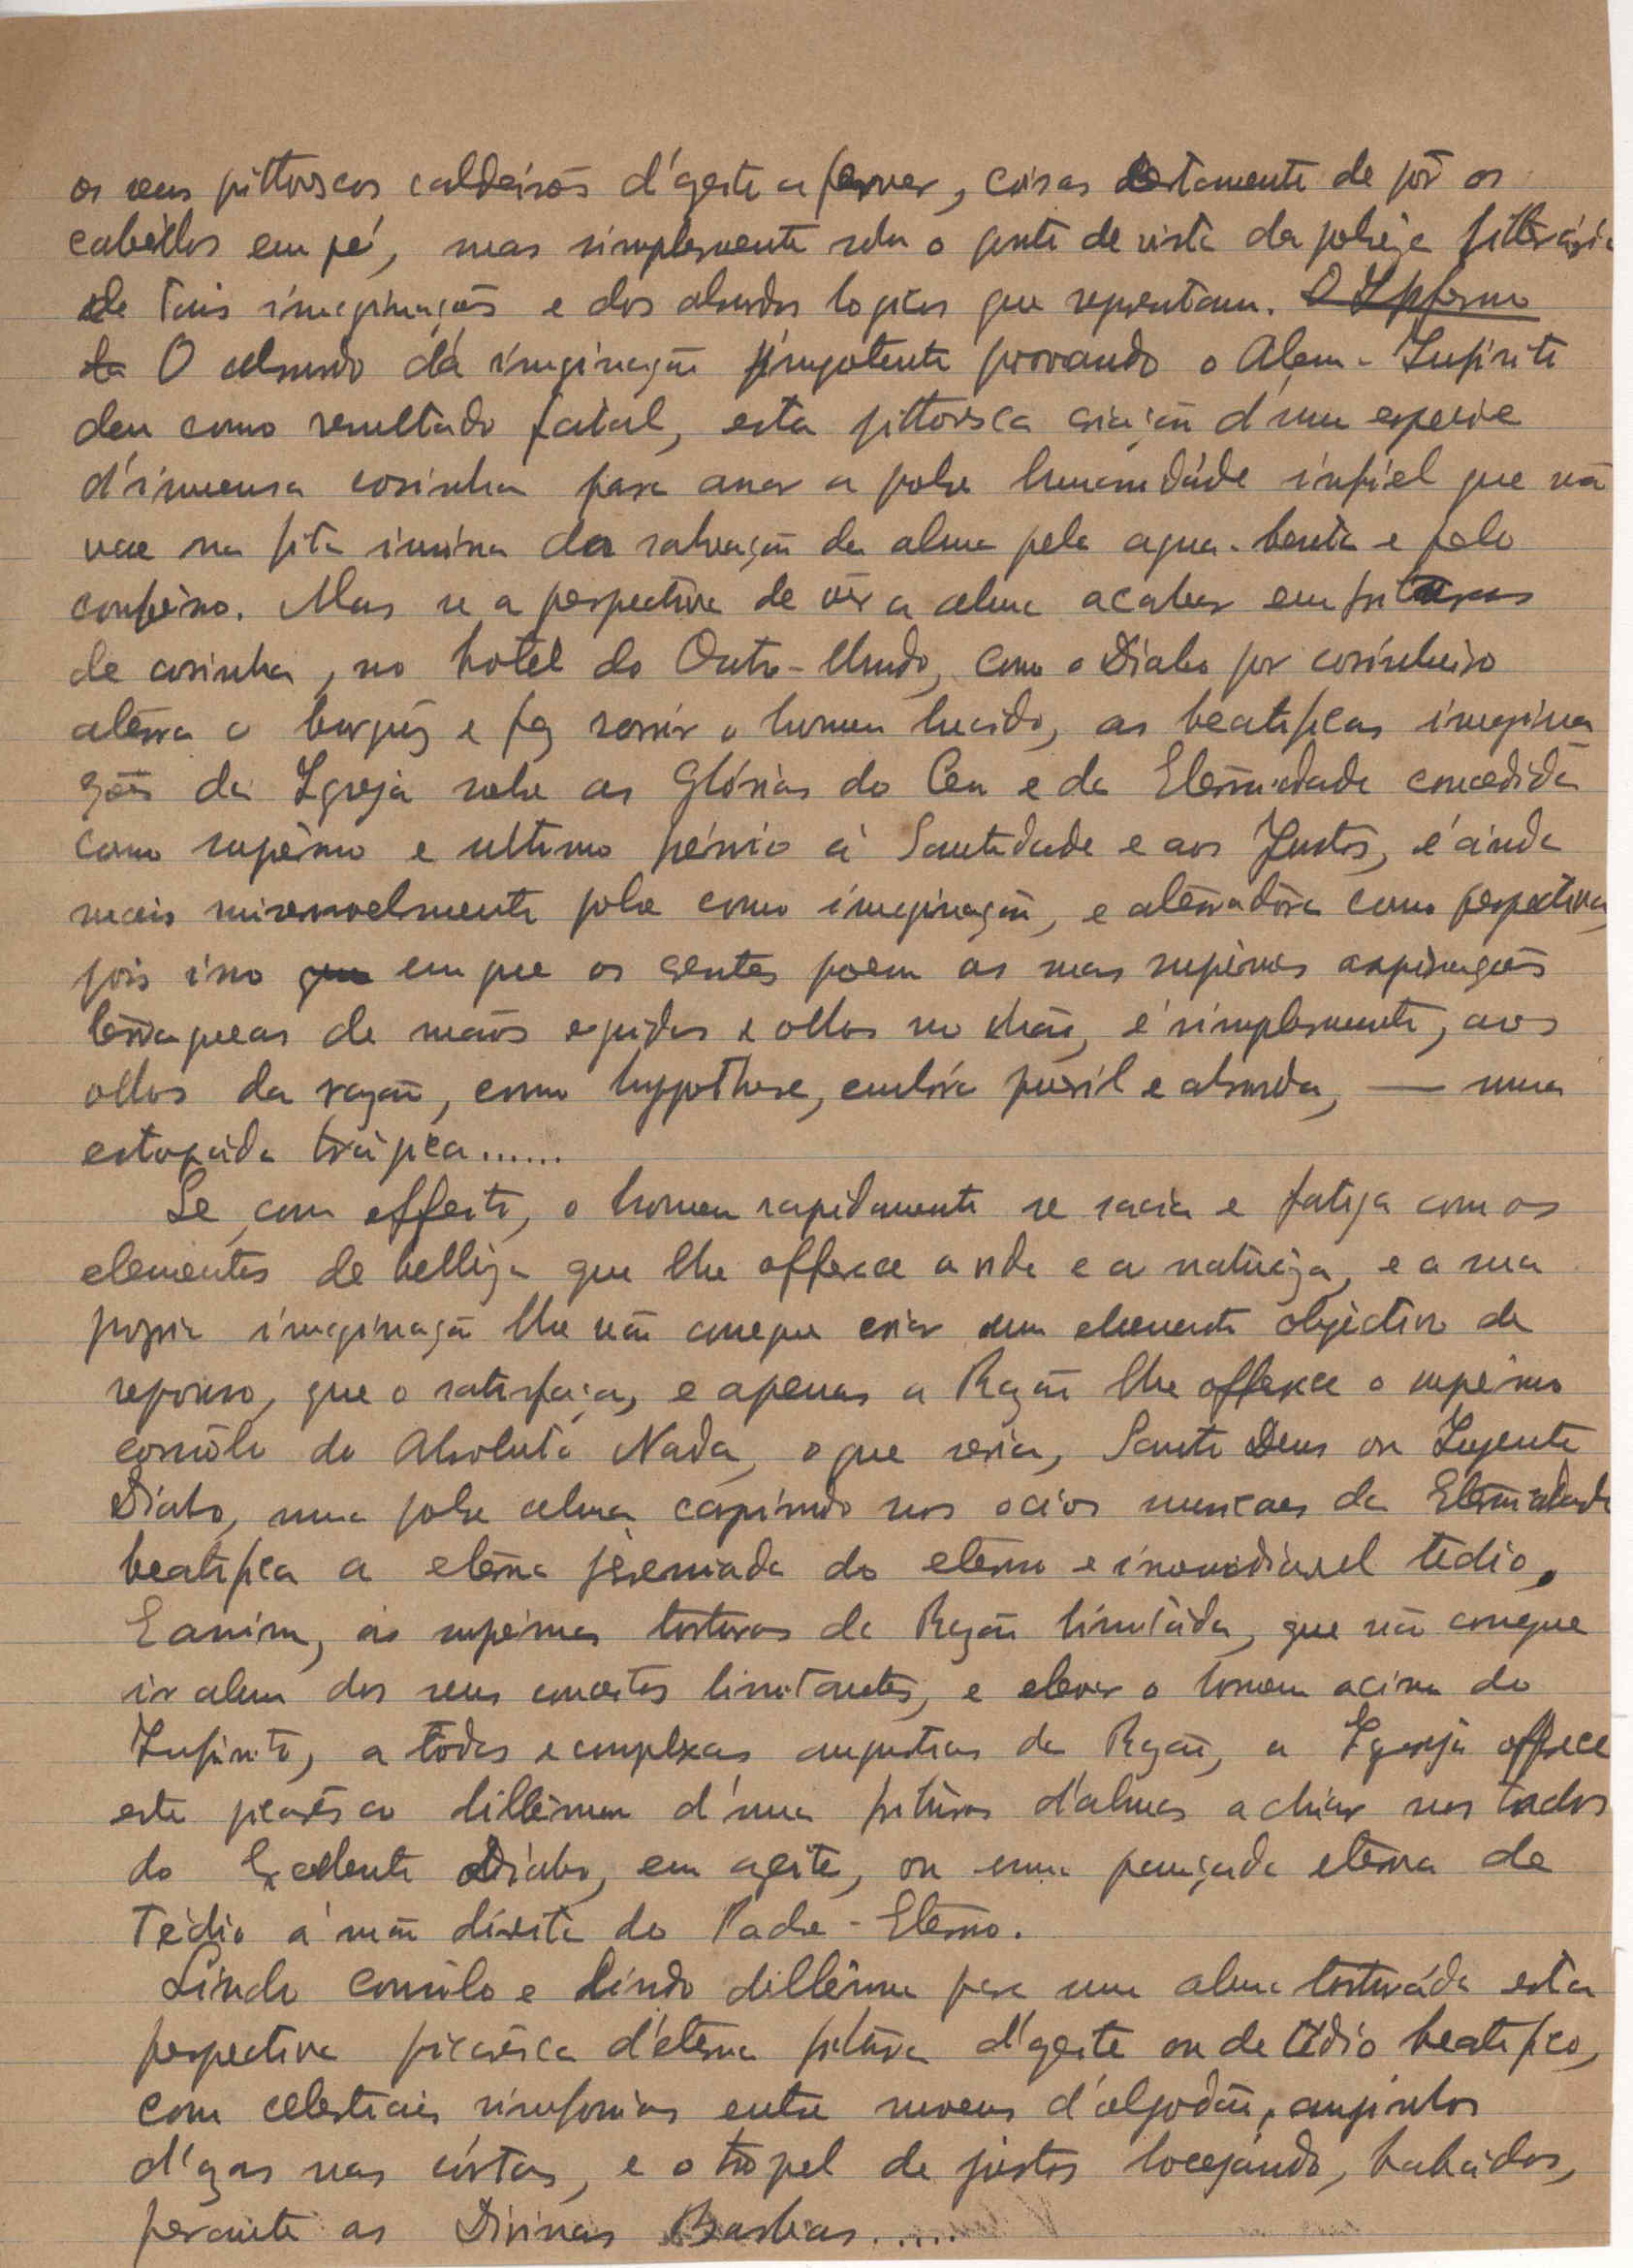 os seus pittorescos caldeirões d'azeite a ferver, coisas certamente de pôr os
cabellos em pé, mas simplesmente sobre o ponto de vista da pobreza litteraria
de tais imaginações e dos absurdos logicos que representam. O Inferno
O absurdo da imaginação impotente povoando o Alem-Infinito
deu como resultado fatal, esta pittoresca criação d'uma especie
d'immensa cosinha para assar a pobre humanidade infiel que não
vae na fita da salvação da alma pela agua-benta e pelo
confesso. Mas se a perspectiva de vêr a alma acabar em frituras
de cosinha, no hotel do Outro-Mundo, com o Diabo por cosinheiro
aterra o burguez e fez sorrir o homem lucido, as beatificas imagina
ções da Igreja sobre as Glórias do Ceu e da Eternidade concedida
como supremo e ultimo prémio á Santidade e aos Justos, é ainda
mais miseravelmente pobre como imaginação, e aterradora como perspectiva,
pois isso que em que os crentes poem as suas supremas aspirações
de mãos erguidas e olhos no chão, é simplesmente, aos
olhos da razão, como hypothese, embora pueril e absurda, — uma
estopada trágica......
Se, com effeito, o homem rapidamente se sacia e fatiga com os
elementos de belleza que lhe offerece a vida e a natureza, e a sua
propria imaginação lhe não consegue criar um elemento objectivo de
repouso, que o satisfaça, e apenas a Razão lhe offerece o supremo
consôlo do Absoluto Nada, o que seria, Santo Deus ou Ingente
Diabo, uma pobre alma carpindo nos ocios da Eternidade
beatifica a eterna jeremiada do eterno e irremediavel tédio.
E assim, ás supremas torturas da Razão limitada, que não consegue
ir alem dos seus conceitos limitantes, e elevar o homem acima do
Infinito, a todas e complexas angustias da Razão, a Igreja offrece
este picarêsco dillêmma d'uma fritura d'almas a chiar nos tachos
do Excellente Diabo, em azeite, ou uma pançada eterna de
Tédio á mão direita do Padre-Eterno.
Lindo consôlo e lindo dillêmma para uma alma torturada esta
perspectiva picarêsca d'eterna fritura d'azeite ou de tédio beatifico,
com celestiaes sinfonias entre nuvens d'algodão, anjinhos
d'azas nas costas, e o tropel de justos bocejando, babados,
perante as Divinas Barbas.....